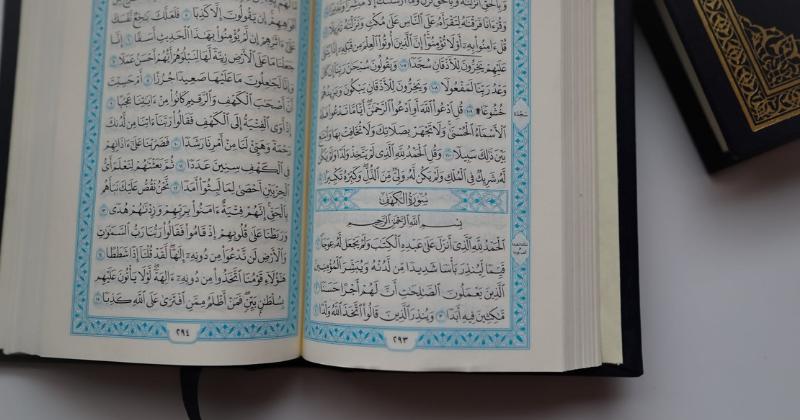 وَبِٱلْحَقِّ أَنزَلْنَٰهُ وَبِٱلْحَقِّ نَزَلَ وَمَآ أَرْسَلْنَٰكَ إِلَّا
وَقُرْءَانًا فَرَقْنَٰهُ لِتَقْرَأَهُۥ عَلَى ٱلنَّاسِ عَلَىٰ مُكْثٍ وَنَزَّلْنَٰهُ
قُلْ ءَامِنُوا۟ بِهِۦٓ أَوْ لَا تُؤْمِنُوٓا۟ إِنَّ ٱلَّذِينَ أُوتُوا۟ ٱلْعِلْمَ مِن قَبْلِهِۦٓ إِذَا
عَلَيْهِمْ يَخِرُّونَ لِلْأَذْقَانِ سُجَّدًا ١٠٧ وَيَقُولُونَ سُبْحَٰنَ رَبِّنَآ إِن كَانَ
وَعْدُ رَبِّنَا لَمَفْعُولًا ١٠٨ وَيَخِرُّونَ لِلْأَذْقَانِ يَبْكُونَ وَيَزِيدُهُمْ
خُشُوعًا ۩ ١٠٩ قُلِ ٱدْعُوا۟ ٱللَّهَ أَوِ ٱدْعُوا۟ ٱلرَّحْمَٰنَ أَيًّا مَّا تَدْعُوا۟ فَلَهُ
ٱلْأَسْمَآءُ ٱلْحُسْنَىٰ وَلَا تَجْهَرْ بِصَلَاتِكَ وَلَا تُخَافِتْ بِهَا وَٱبْتَغِ
بَيْنَ ذَٰلِكَ سَبِيلًا ١١٠ وَقُلِ ٱلْحَمْدُ لِلَّهِ ٱلَّذِى لَمْ يَتَّخِذْ وَلَدًا وَلَمْ يَكُن
لَّهُۥ شَرِيكٌ فِى ٱلْمُلْكِ وَلَمْ يَكُن لَّهُۥ وَلِىٌّ مِّنَ ٱلذُّلِّ وَكَبِّرْهُ تَكْبِيرًۢا ١١١
سُورَةُ الكَهْفِ
بِسْمِ ٱللَّهِ ٱلرَّحْمَٰنِ ٱلرَّحِيمِ
ٱلْحَمْدُ لِلَّهِ ٱلَّذِىٓ أَنزَلَ عَلَىٰ عَبْدِهِ ٱلْكِتَٰبَ وَلَمْ يَجْعَل لَّهُۥ عِوَجَا ١
قَيِّمًا لِّيُنذِرَ بَأْسًا شَدِيدًا مِّن لَّدُنْهُ وَيُبَشِّرَ ٱلْمُؤْمِنِينَ
ٱلَّذِينَ يَعْمَلُونَ ٱلصَّٰلِحَٰتِ أَنَّ لَهُمْ أَجْرًا حَسَنًا ٢
مَّٰكِثِينَ فِيهِ أَبَدًا ٣ وَيُنذِرَ ٱلَّذِينَ قَالُوا۟ ٱتَّخَذَ ٱللَّهُ وَلَدًا ٤
سَجْدَة
٢٩٣
أَفْوَٰهِهِمْ إِن يَقُولُونَ إِلَّا كَذِبًا ٥ فَلَعَلَّكَ بَٰخِعٌ نَّفْسَكَ
عَلَىٰٓ ءَاثَٰرِهِمْ إِن لَّمْ يُؤْمِنُوا۟ بِهَٰذَا ٱلْحَدِيثِ أَسَفًا ٦ إِنَّا
جَعَلْنَا مَا عَلَى ٱلْأَرْضِ زِينَةً لَّهَا لِنَبْلُوَهُمْ أَيُّهُمْ أَحْسَنُ عَمَلًا ٧
وَإِنَّا لَجَٰعِلُونَ مَا عَلَيْهَا صَعِيدًا جُرُزًا ٨ أَمْ حَسِبْتَ
أَنَّ أَصْحَٰبَ ٱلْكَهْفِ وَٱلرَّقِيمِ كَانُوا۟ مِنْ ءَايَٰتِنَا عَجَبًا ٩
إِذْ أَوَى ٱلْفِتْيَةُ إِلَى ٱلْكَهْفِ فَقَالُوا۟ رَبَّنَآ ءَاتِنَا مِن لَّدُنكَ
رَحْمَةً وَهَيِّئْ لَنَا مِنْ أَمْرِنَا رَشَدًا ١٠ فَضَرَبْنَا عَلَىٰٓ ءَاذَانِهِمْ
فِى ٱلْكَهْفِ سِنِينَ عَدَدًا ١١ ثُمَّ بَعَثْنَٰهُمْ لِنَعْلَمَ أَىُّ
ٱلْحِزْبَيْنِ أَحْصَىٰ لِمَا لَبِثُوٓا۟ أَمَدًا ١٢ نَّحْنُ نَقُصُّ عَلَيْكَ نَبَأَهُم
بِٱلْحَقِّ إِنَّهُمْ فِتْيَةٌ ءَامَنُوا۟ بِرَبِّهِمْ وَزِدْنَٰهُمْ هُدًى ١٣
وَرَبَطْنَا عَلَىٰ قُلُوبِهِمْ إِذْ قَامُوا۟ فَقَالُوا۟ رَبُّنَا رَبُّ ٱلسَّمَٰوَٰتِ
وَٱلْأَرْضِ لَن نَّدْعُوَا۟ مِن دُونِهِۦٓ إِلَٰهًا لَّقَدْ قُلْنَآ إِذًا شَطَطًا ١٤
هَٰٓؤُلَآءِ قَوْمُنَا ٱتَّخَذُوا۟ مِن دُونِهِۦٓ ءَالِهَةً لَّوْلَا يَأْتُونَ عَلَيْهِم
بِسُلْطَٰنٍۭ بَيِّنٍ فَمَنْ أَظْلَمُ مِمَّنِ ٱفْتَرَىٰ عَلَى ٱللَّهِ كَذِبًا ١٥
٢٩٤